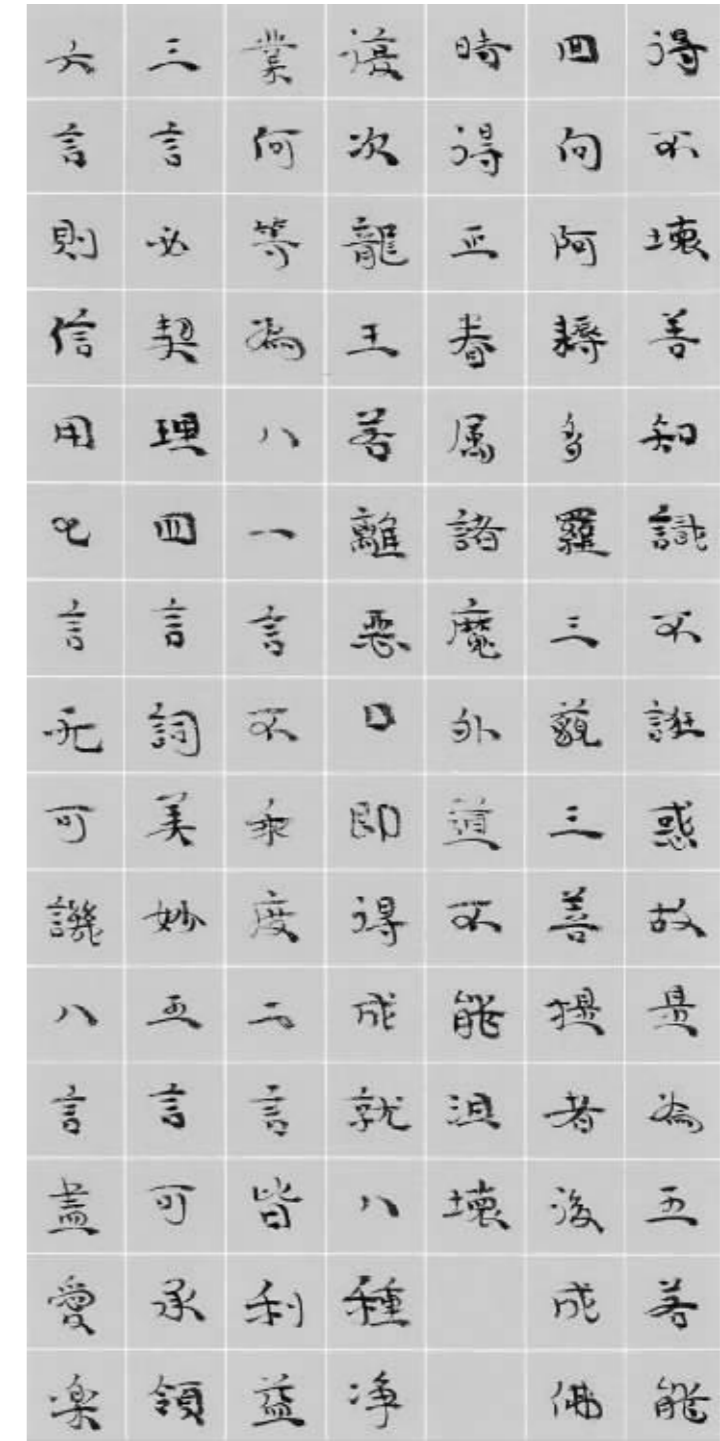 得不壞善知識不誑惑故是為五若能
回向阿耨多羅三藐三菩提者後成佛
時得正眷属諸魔外道不能沮壞
復次龍王若離惡口即得成就八種净
業何等為八一言不乖度二言皆利益
三言必契理四言詞美妙五言可承領
六言則信用七言无可譏八言盡愛楽